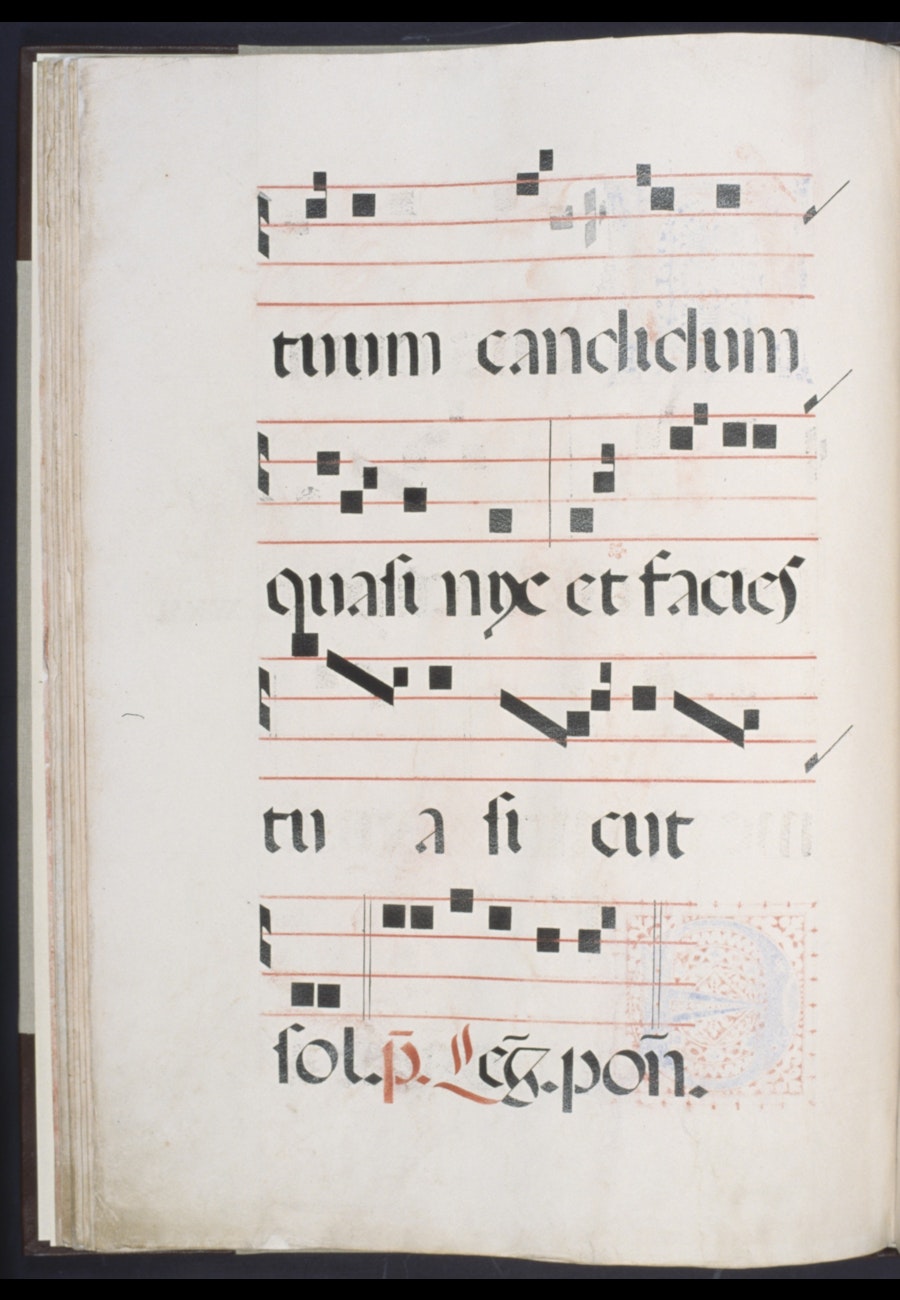 tuum candidum
quasi nix et facies
tu a si cut
sol. p̄. 
 pon̄.